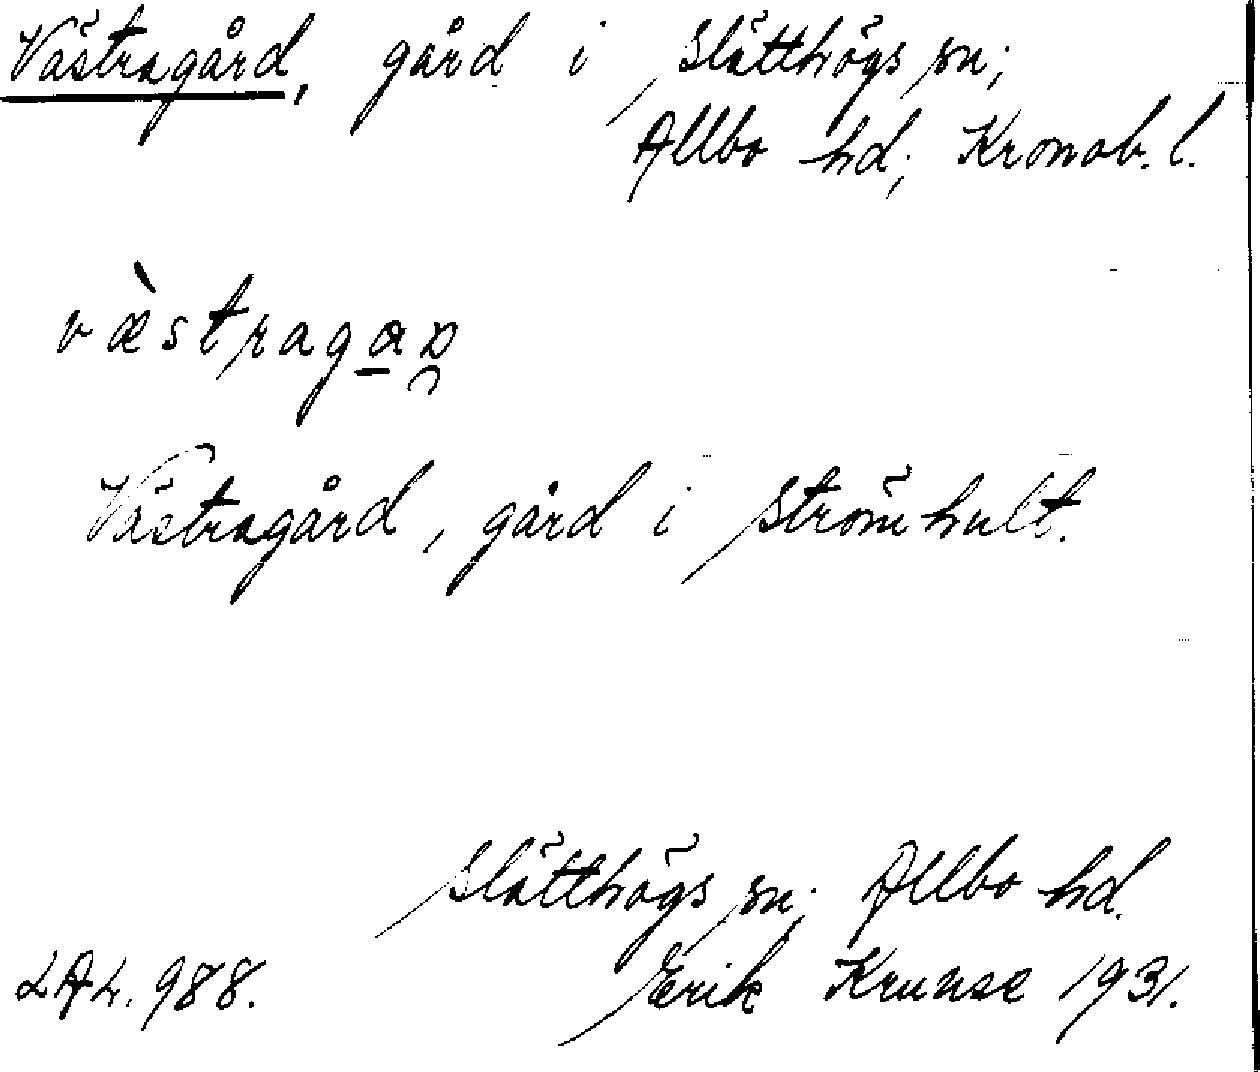 Västragård, gård i Slätthögs sn;
Allbo hd; Kronob. l.
væ̀stragap
Västragård, gård i Strömhult.
Slätthögs sn; Allbo hd.
LAL. 988. Erik Krunse 1931.